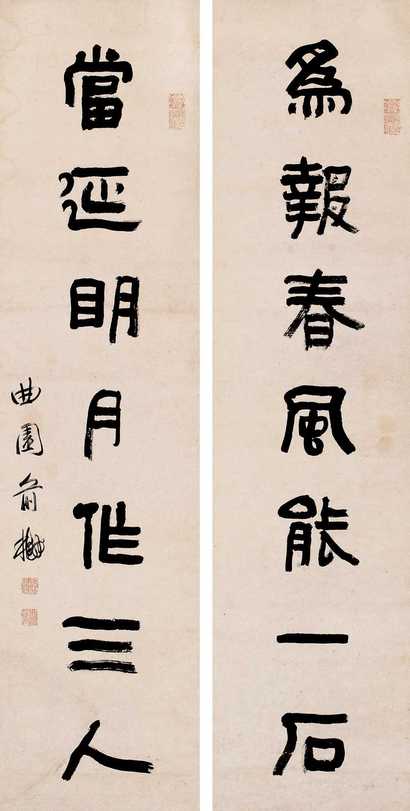 為報春風能一石
當延明月作三人
曲園俞樾